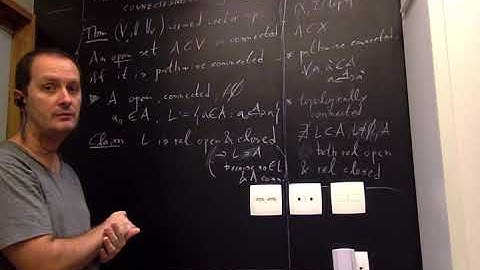 CONNECTEDNESS
Thm (V, || ||v) normed vector sp.
An open set A⊂V is connected
iff it is pathwise connected
A open, connected, ≠∅
a₀ ∈ A, L := {a∈A: a₀
Claim L is rel. open & closed
(⇒ L = A
because a₀∈L
& A conn.
A ⊂ X
* pathwise connected
∀a,
* topologically
connected
∄ L⊂A, L≠∅, A
both rel. open
& rel. closed